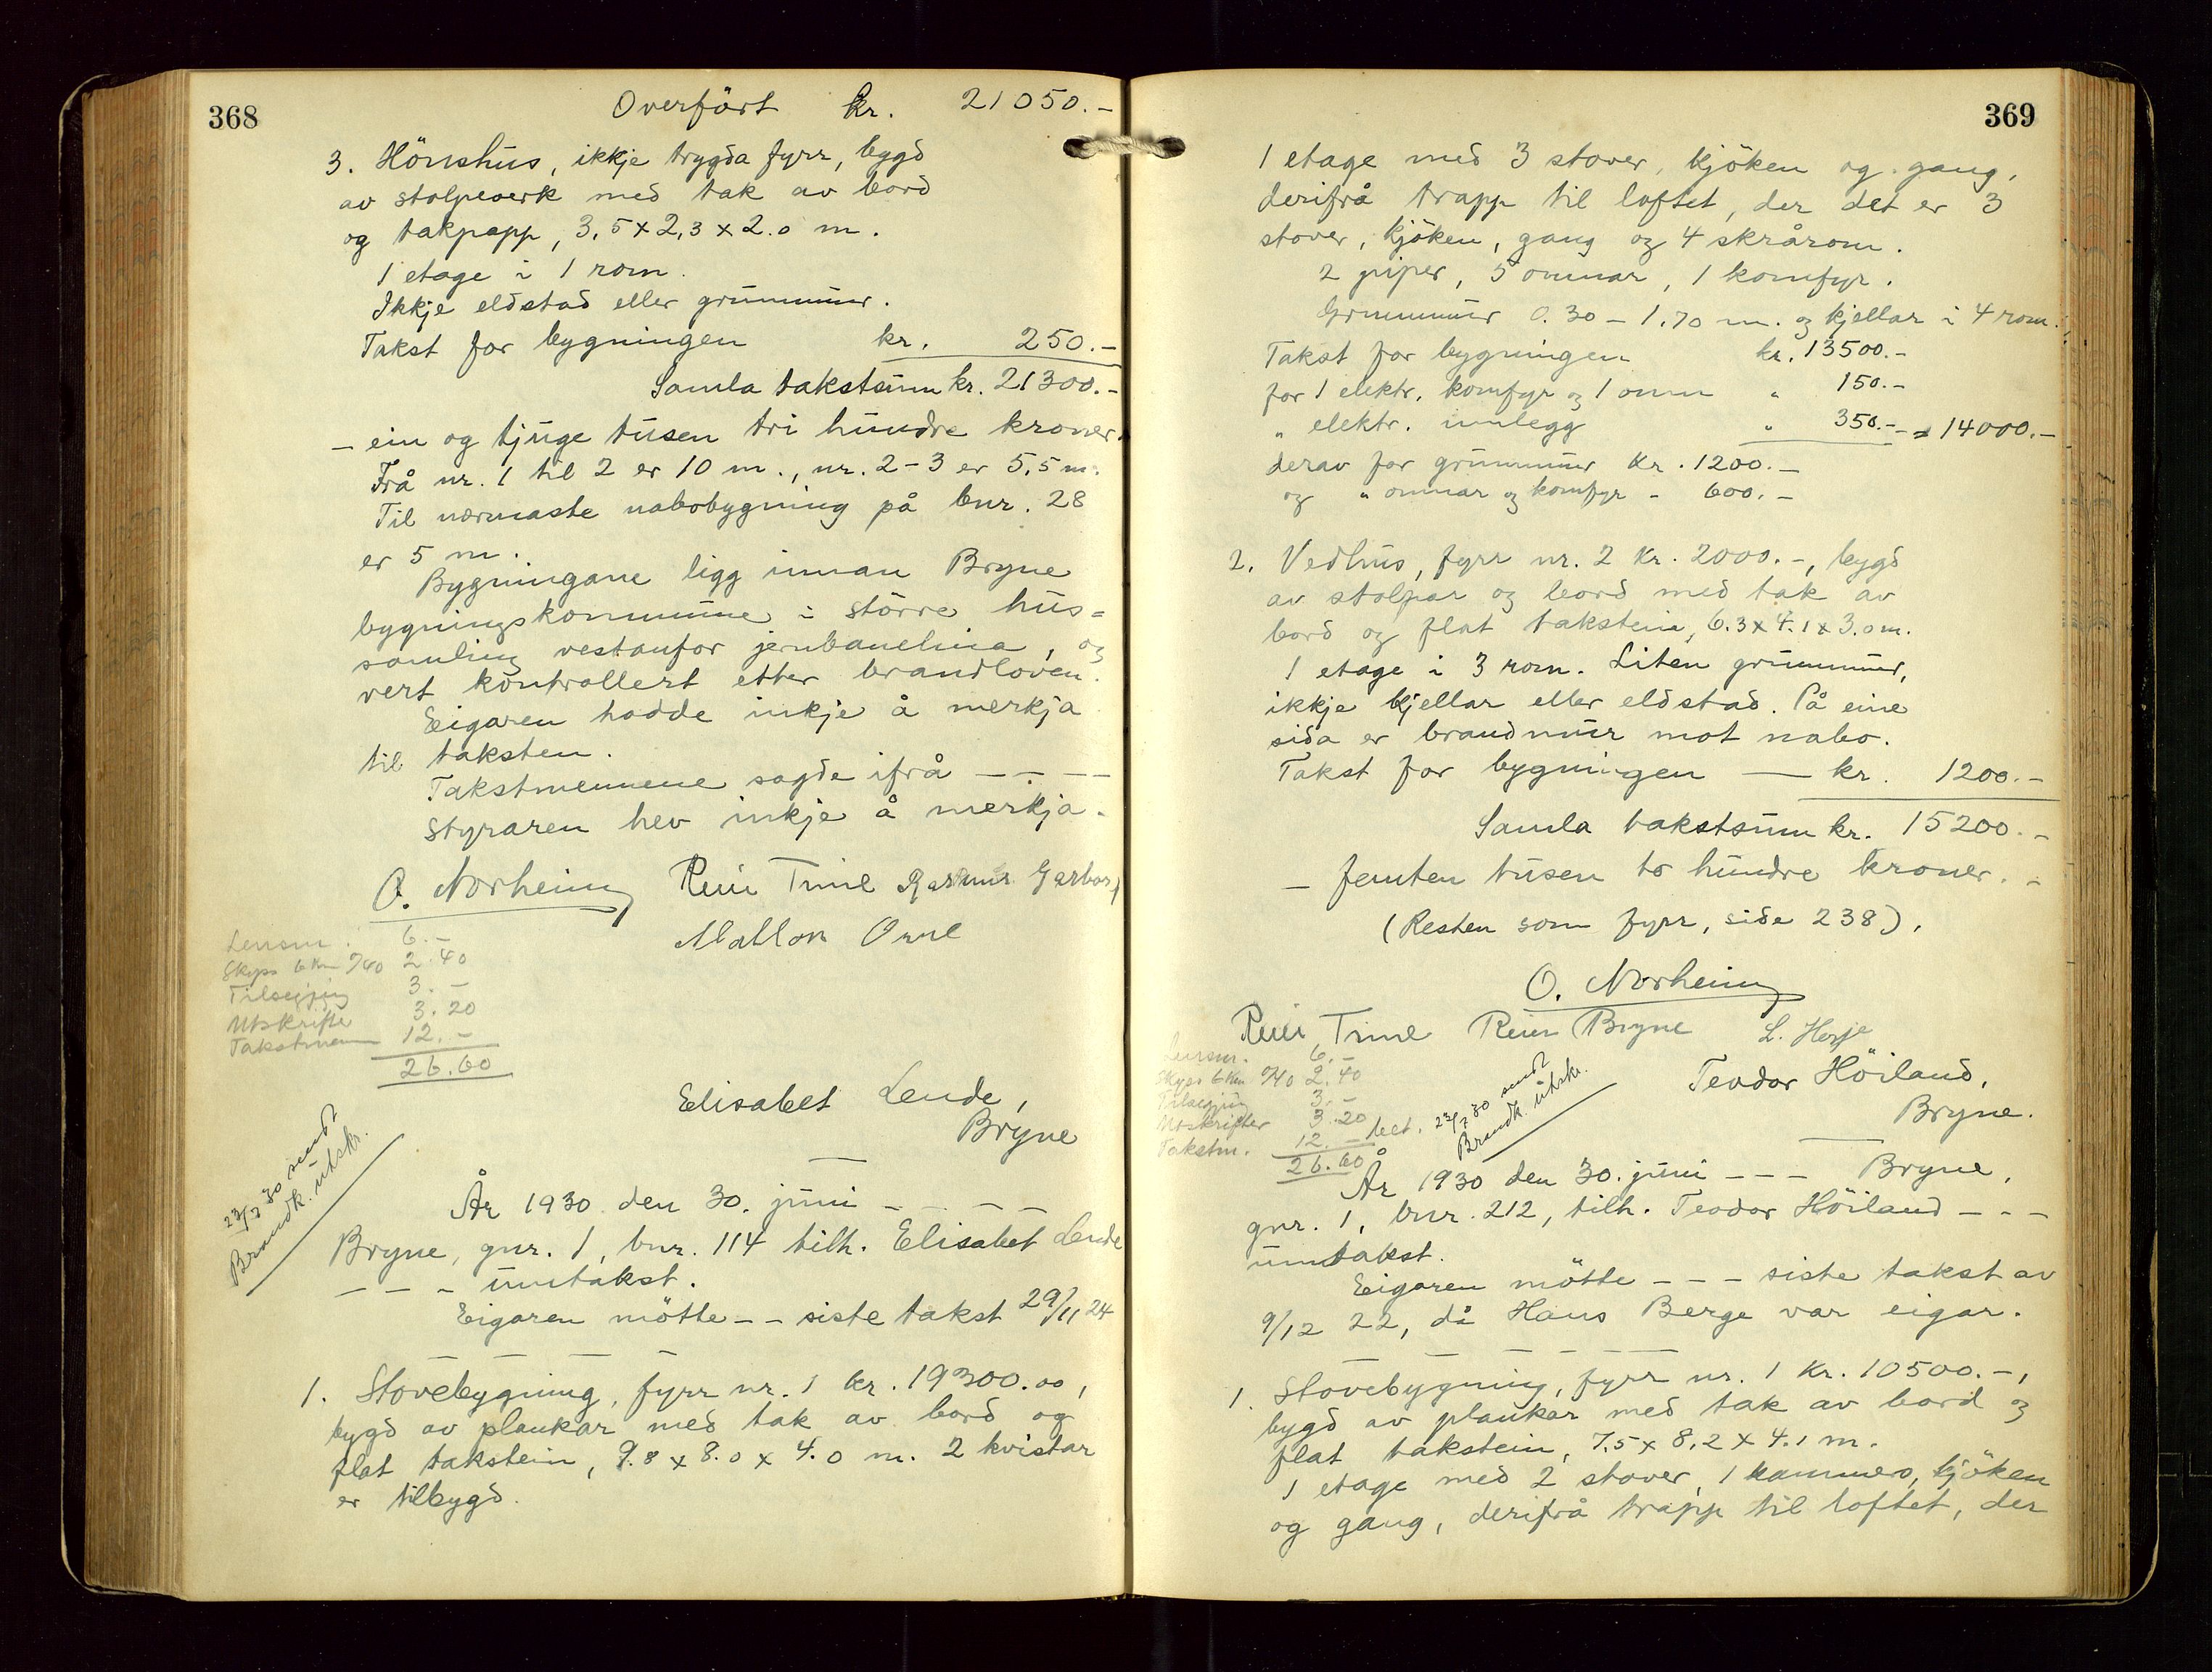 368
Overfört kr. 21050.-
3. Hönshus, ikkje trygda fyrr, bygd
av stolpeverk med tak av bord
og takpapp, 3,5 x 2,3 x 2.0 m.
1 etage i 1 rom.
Ikkje eldstad eller grunnmur.
Takst for bygningen kr. 250.-
Samla takstsum kr. 21300.-
- ein og tjuge tusen tri hundre kroner.
Frå nr. 1 til 2 er 10 m., nr. 2-3 er 5,5 m.
Til nærmaste nabobygning på bnr. 28
er 5 m.
Bygningane ligg innan Bryne
bygningskommune i större hus=
samling vestanfor jernbanelina, og
vert kontrollert etter brandloven.
Eigaren hadde inkje å merkja
til taksten.
Takstmennene sagde ifrå - - - -
Styraren hev inkje å merkja.
O. Norheim Reier Trine Rasmus Garborg
Lensm. 6.-
Skyss 6 Km á/40 2.40
Tilseijing 3.-
Utskrifter 3.20
Takstmenn 12.-
26.60
Elisabet Lende,
Bryne
23/7 30 sendt
Brandk. utskr.
År 1930 den 30. juni - - - -
Bryne, gnr. 1, bnr. 114 tilh. Elisabet Lende
- - - umtakst.
Eigaren mötte - - siste takst 29/11 24
1. Stovebygning, fyrr nr. 1 kr. 19300.00,
bygd av plankar med tak av bord og
flat takstein, 9.8 x 8.0 x 4.0 m. 2 kvistar
er tilbygd.
369
1 etage med 3 stover, kjöken og gang,
derifrå trapp til loftet, der det er 3
stover, kjöken, gang og 4 skrårom.
2 piper, 5 omnar, 1 komfyr.
Grunnmur 0.30 - 1.70 m. og kjellar i 4 rom.
Takst for bygningen kr. 13500.-
for 1 elektr. komfyr og 1 omn " 150.-
" elektr. innlegg " 350.- = 14000.-
derav for grunnmur kr. 1200.-
og " omnar og komfyr - 600.-
2. Vedhus, fyrr nr. 2 kr. 2000.-, bygd
av stolpar og bord med tak av
bord og flat takstein, 6.3 x 4.1 x 3.0 m.
1 etage i 3 rom. Liten grunnmur,
ikkje kjellar eller eldstad. På eine
sida er brandmur mot nabo.
Takst for bygningen — kr. 1200.-
Samla takstsum kr. 15200.-
- femten tusen to hundre kroner. -
(Resten som fyrr, side 238).
O. Norheim
Reier Trine Reier Bryne L. Herje
Lensm. 6.-
Skyss 6 Km á/40 2.40
Tilseijing 3.-
Utskrifter 3.20
Takstm. 12.-
26.60
bet. 23/7 30 sendt
Brandk. utskr.
Teodor Höiland,
Bryne.
År 1930 den 30. juni - - - Bryne,
gnr. 1, bnr. 212, tilh. Teodor Höiland - - -
umtakst.
Eigaren mötte - - - siste takst av
9/12 22, då Hans Berge var eigar.
1. Stovebygning, fyrr nr. 1 kr. 10500.-,
bygd av plankar med tak av bord og
flat takstein, 7.5 x 8.2 x 4.1 m.
1 etage med 2 stover, 1 kammers, kjöken
og gang, derifrå trapp til loftet, der